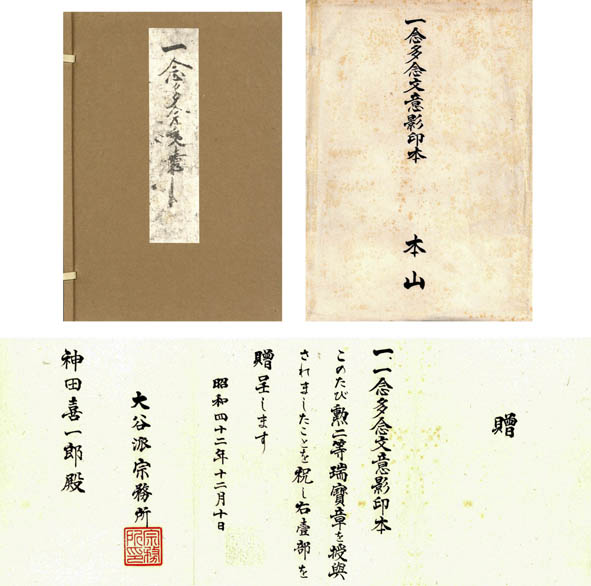 一念多念文意
一念多念文意影印本
本山
贈
一、一念多念文意影印本
このたび勲二等瑞寶章を授與
されましたことを祝し右壹部を
贈呈します
昭和四十二年十二月十日
大谷派宗務所
宗務
所印
神田喜一郎殿